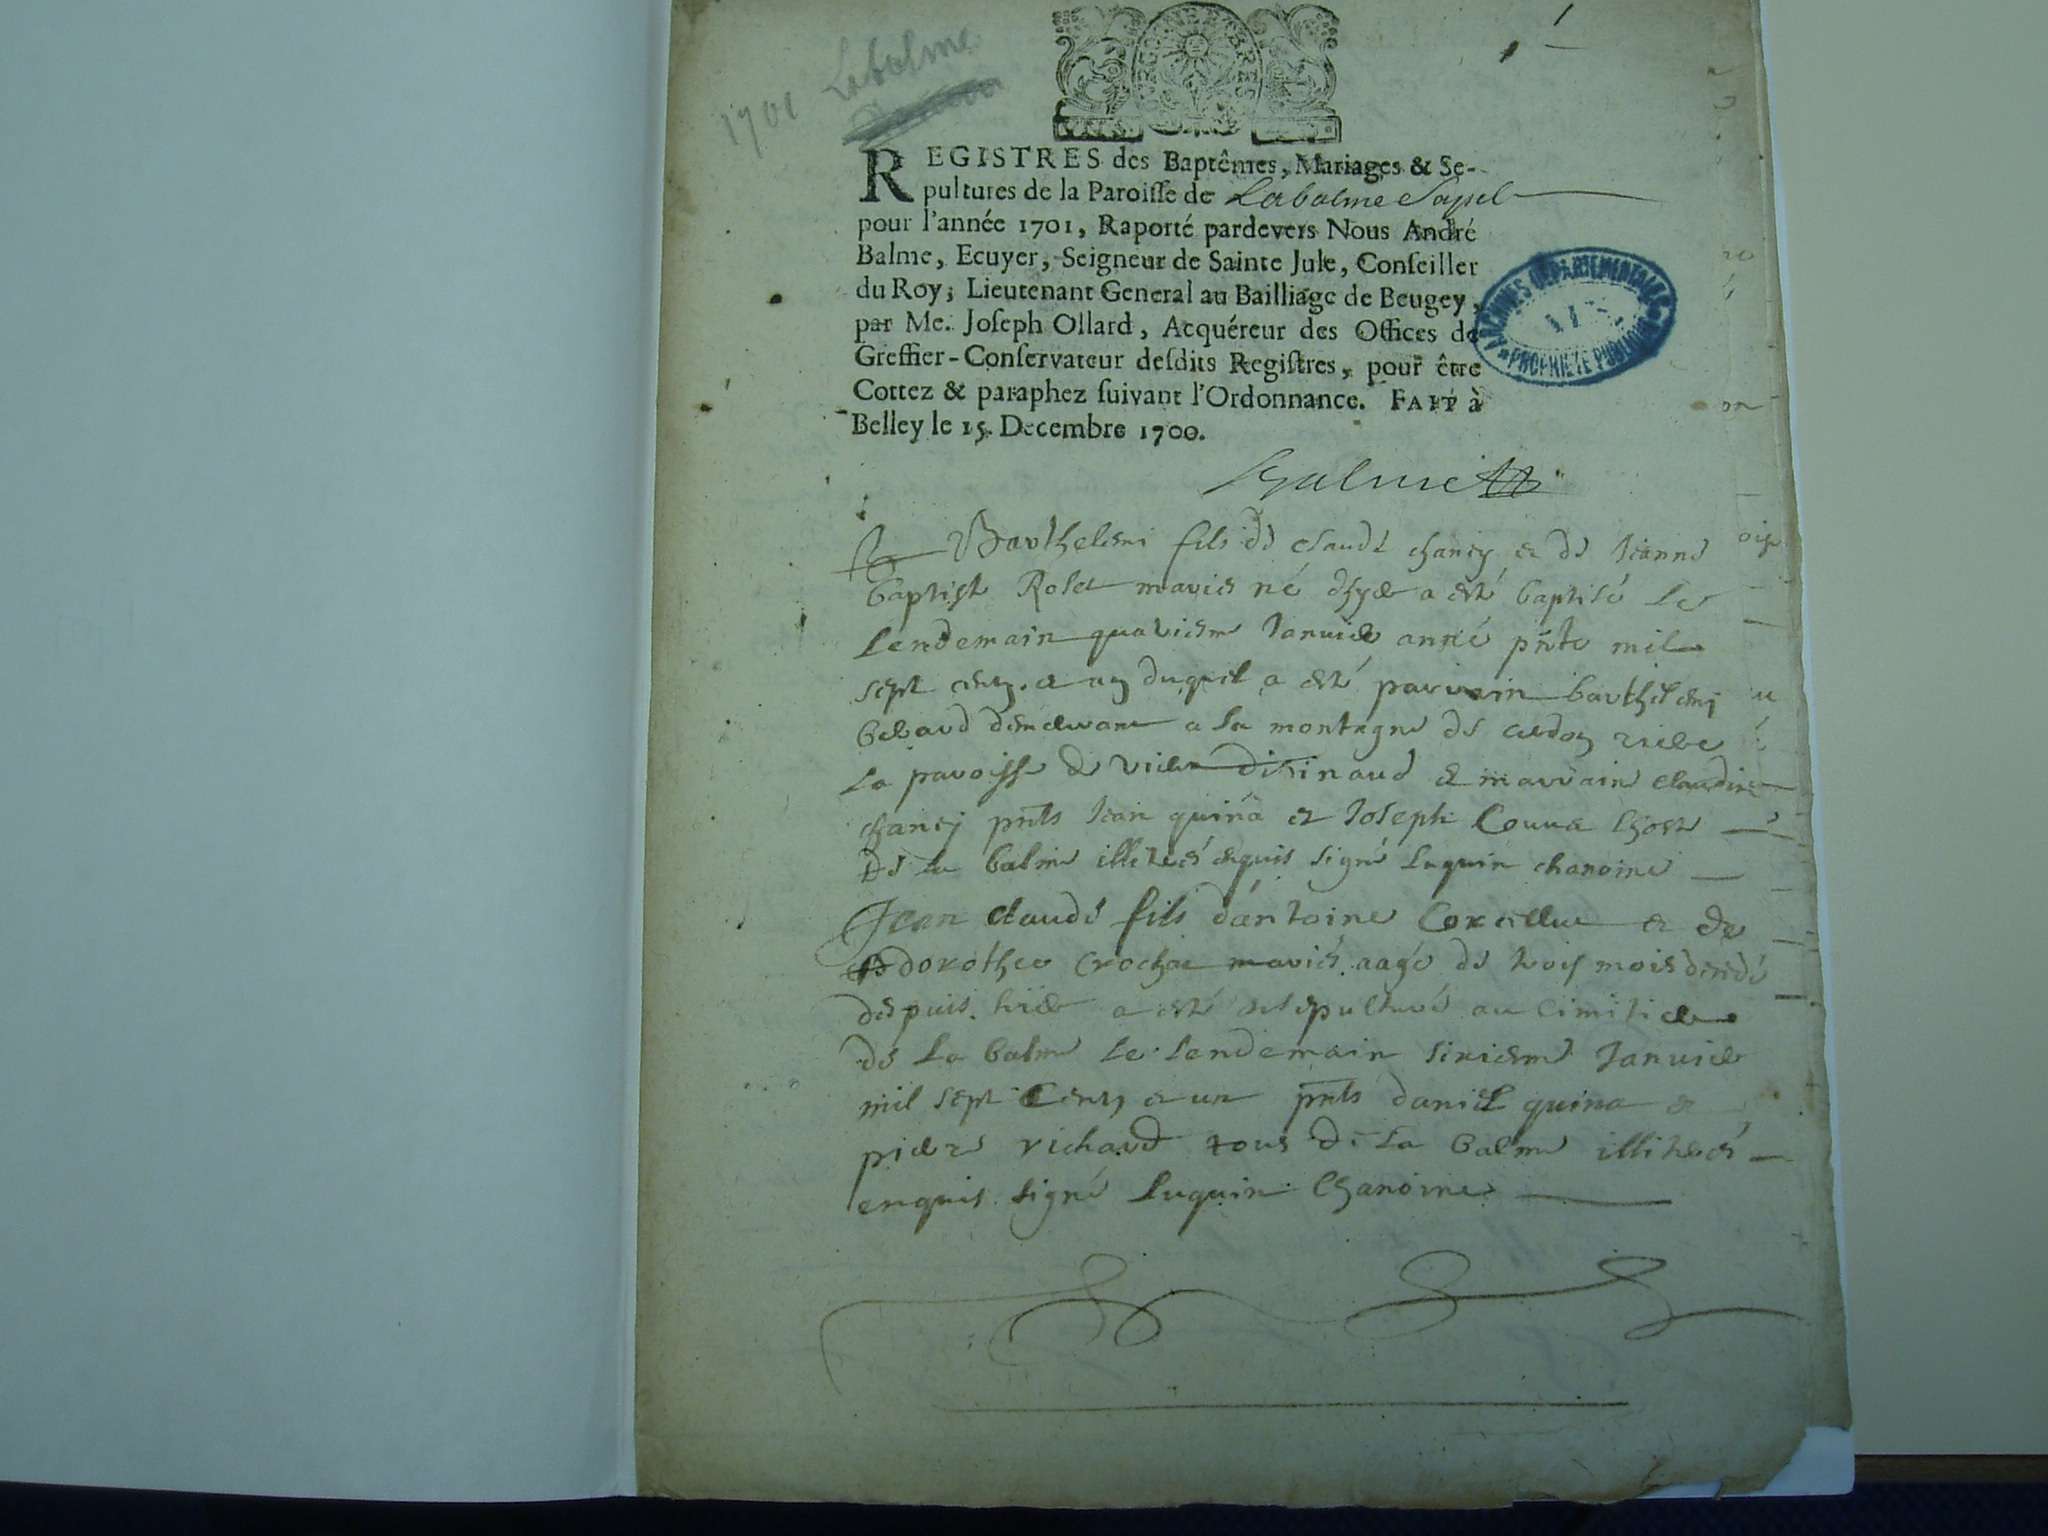 1
1701 Labalme
REGISTRES des Baptêmes, Mariages & Se-
pultures de la Paroisse de Labalme Sapel
pour l'année 1701, Raporté pardevers Nous André
Balme, Ecuyer, Seigneur de Sainte Jule, Conseiller
du Roy, Lieutenant General au Bailliage de Beugey,
par Me. Joseph Ollard, Acquéreur des Offices de
Greffier-Conservateur desdits Registres, pour être
Cottez & paraphez suivant l'Ordonnance. FAIT à
Belley le 15. Decembre 1700.
ARCHIVES DEPARTEMENTALES
AIN
PROPRIETE PUBLIQUE
Balme
Barthelemi fils de Claude chaney et de Jeanne
baptiste Rolet mariés né hyer a esté baptisé le
lendemain quatriesme Janvier année pnte mil
sept cents et un duquel a esté parrain barthelemy
demeurant a la montagne de cerdon riere
la paroisse de vieux disinaud et marraine claudine
chaney pnts Jean quina et Joseph
de la balme illiterés enquis signé luquin chanoine
Jean claude fils d'antoine et de
dorothee crochat mariés aagé de trois mois decedé
despuis hier a esté ensepulturé au cimitiere
de la balme le lendemain sixiesme Janvier
mil sept cents et un pnts daniel quina et
pierre richard tous de la balme illiterés
enquis signé luquin chanoine